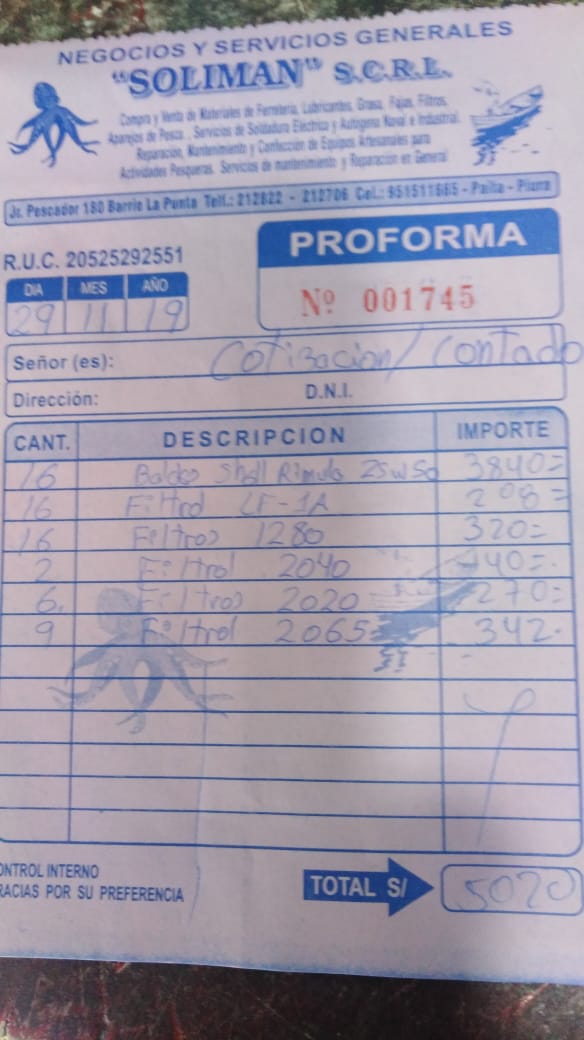 NEGOCIOS Y SERVICIOS GENERALES
"SOLIMAN" S.C.R.L.
Compra y Venta de Materiales de Ferretería, Lubricantes, Grasa, Fajas, Filtros,
Aparejos de Pesca, Servicios de Soldadura Eléctrica y Autógena Naval e Industrial.
Reparación, Mantenimiento y Confección de Equipos Artesanales para
Actividades Pesqueras. Servicios de mantenimiento y Reparación en General
Jr. Pescador 180 Barrio La Punta Telf.: 212822 - 212706 Cel.: 951511665 - Paita - Piura
R.U.C. 20525292551
PROFORMA
Nº 001745
DIA MES AÑO
29 11 19
Señor (es): Cotizacion / Contado
Dirección: D.N.I.
CANT. DESCRIPCION IMPORTE
16 Baldes Shell Rimula 25w50 3840=
16 Filtrol LF-1A 208=
16 Filtros 1280 320=
2 Filtrol 2040 40=
6. Filtros 2020 270=
9 Filtrol 2065 342.
ONTROL INTERNO
RACIAS POR SU PREFERENCIA
TOTAL S/ 5020